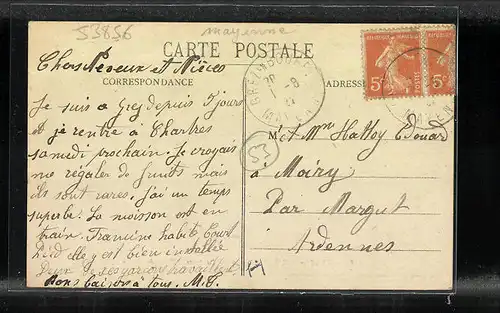 53856
mayenne
CARTE POSTALE
Chers Neveux et Nièces
CORRESPONDANCE
ADRESSE
Je suis a Grez depuis 5 jours
et je rentre à Chartres
samedi prochain. Je croyais
me régaler de fruits mais
ils sont rares. J'ai un temps
superbe. La moisson est en
train. Francine habite Court
elle y est bien installée
Deux de ses garçons travaillent
Bons baisers à tous. M.P.
GREZ
5c
5c
POSTES
53
M et Mme Hattoy Edouar
à Moiry
Par Margut
Ardennes